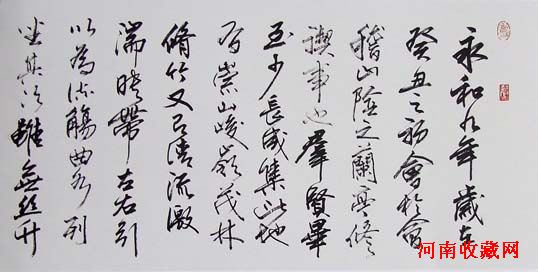 永和九年歲在
癸丑之初會於會
稽山陰之蘭亭修
禊事也羣賢畢
至少長咸集此地
有崇山峻嶺茂林
脩竹又有清流激
湍暎帶左右引
以為流觴曲水列
坐其次雖無絲竹
河南收藏网